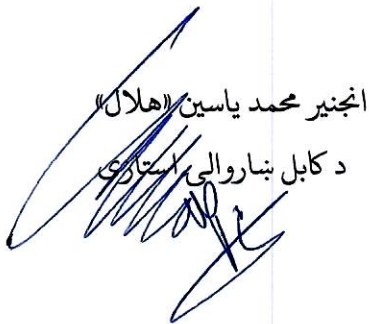 انجنیر محمد یاسین «هلال»
د کابل ښاروالۍ استازی